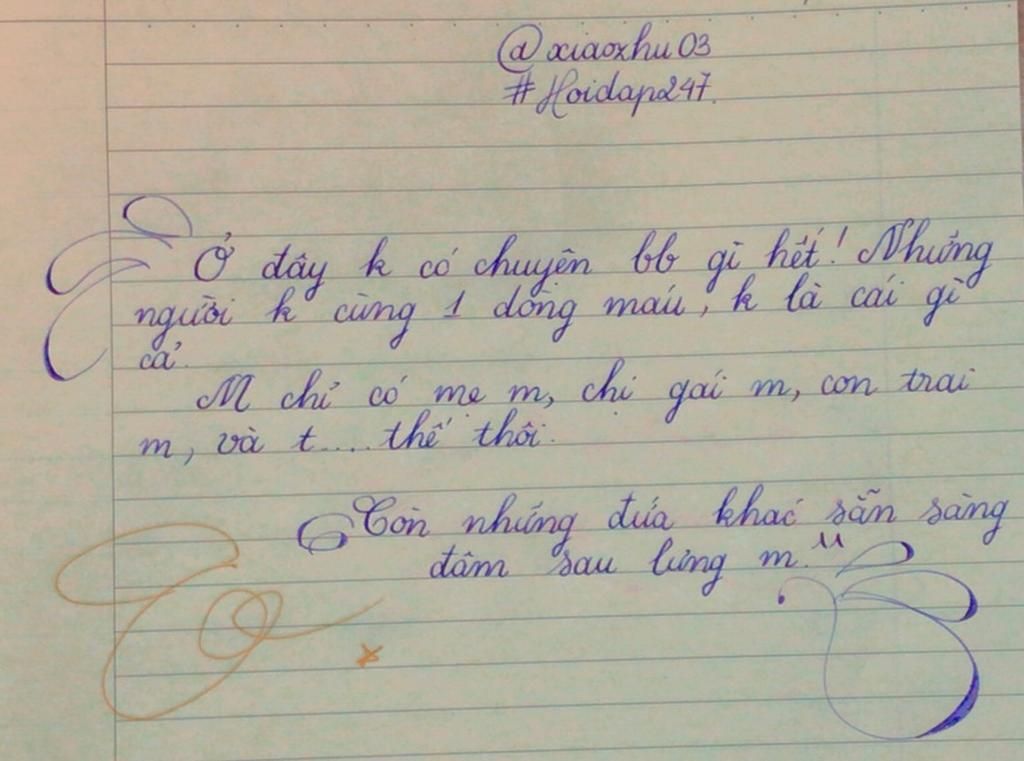 @xiaozhu03
#Hoidap247.
Ở đây k có chuyện bb gì hết! Những
người k cùng 1 dòng máu, k là cái gì
cả.
M chỉ có mẹ m, chị gái m, con trai
m, và t.... thế thôi.
Còn những đứa khác sẵn sàng
đâm sau lưng m."